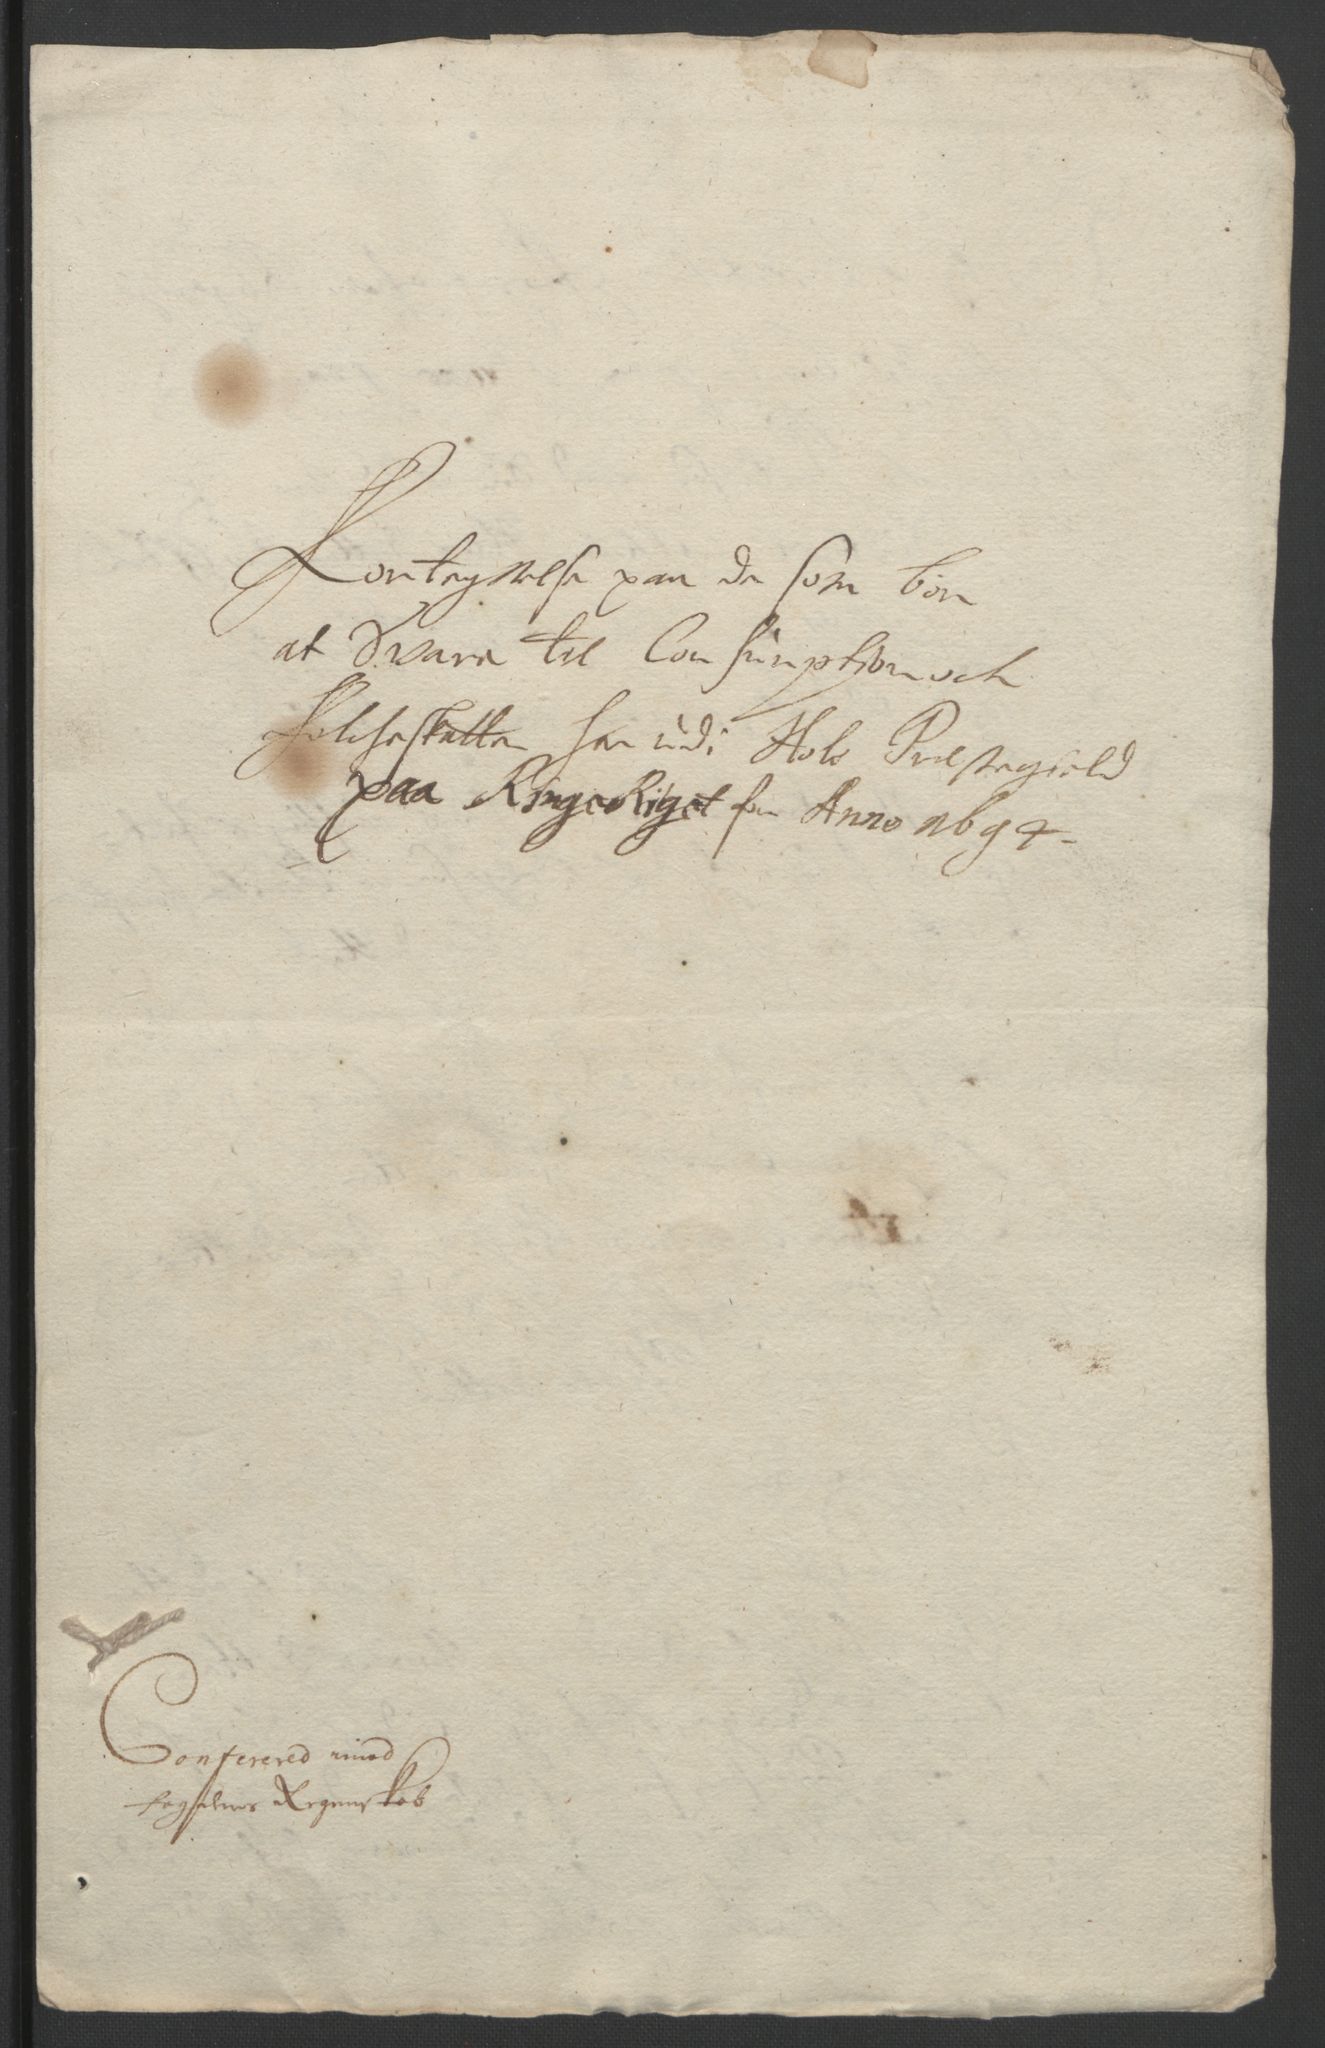 Forteignelse paa de som bør
at Svare til Consumptionn och
Folcheskatten her udi Hole Prestegield
paa RingeRiget for Anno 1694
Conferered med
fogdens Regenskab